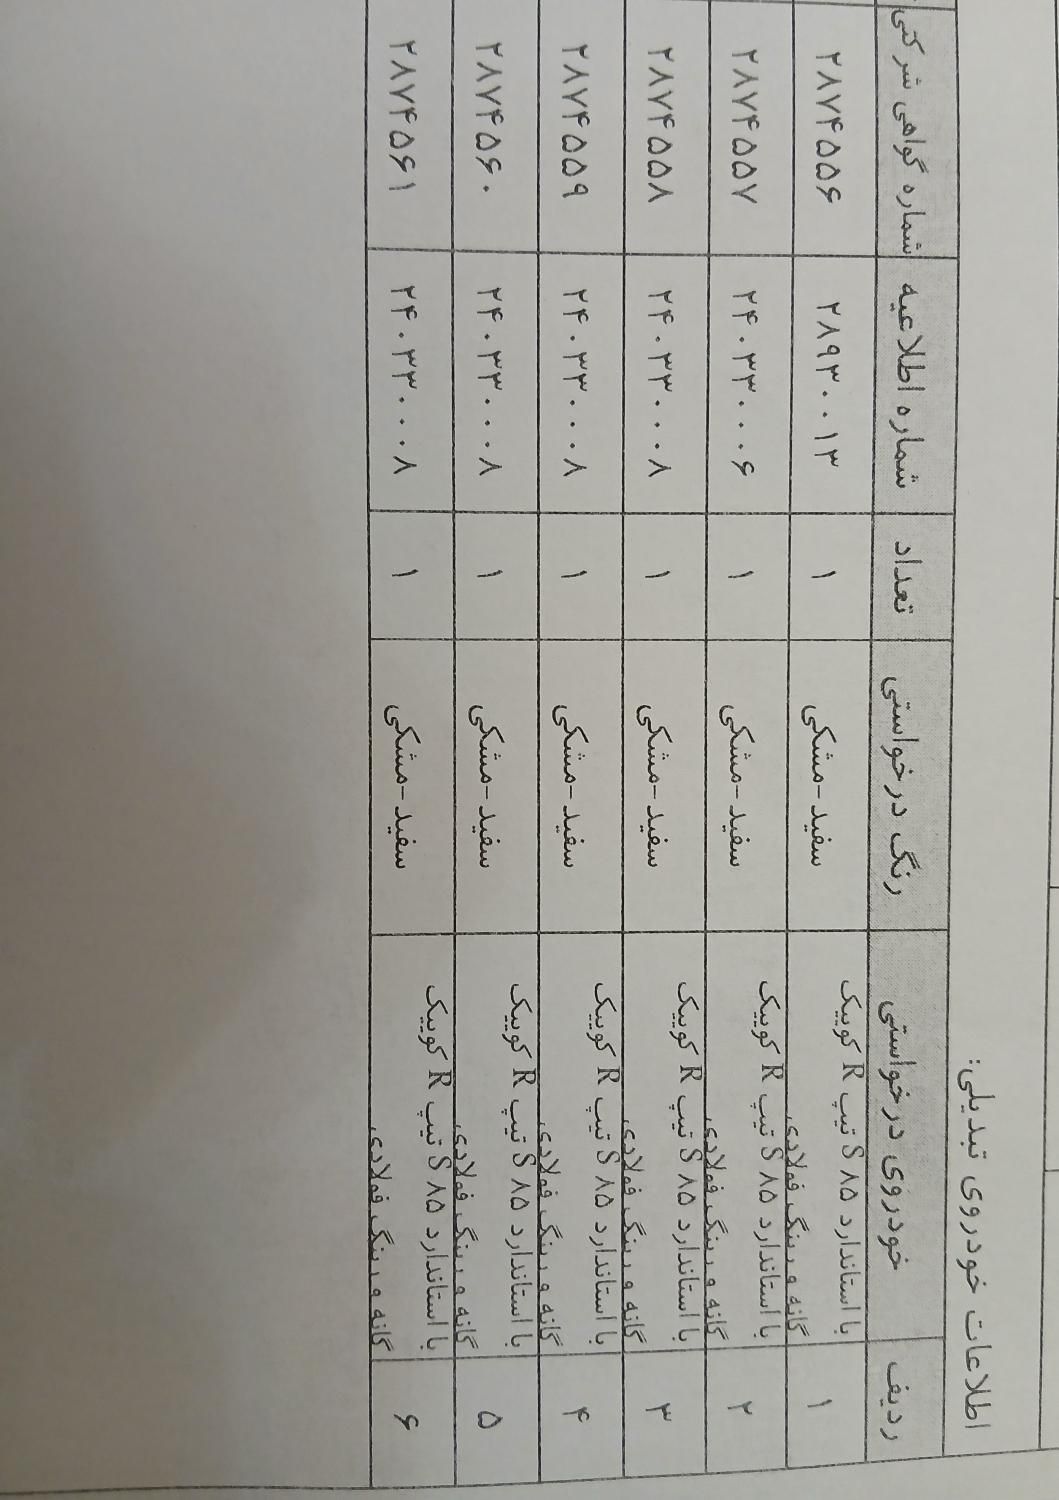 اطلاعات خودروی تبدیلی:
ردیف خودروی درخواستی رنگ درخواستی تعداد شماره اطلاعیه شماره گواهی شرکتی
۱ کوییک R تیپ S با استاندارد ۸۵ سفید-مشکی ۱ ۲۸۹۳۰۰۱۳ ۲۸۷۴۵۵۶
گانه و رینگ فولادی
۲ کوییک R تیپ S با استاندارد ۸۵ سفید-مشکی ۱ ۲۴۰۳۳۰۰۰۶ ۲۸۷۴۵۵۷
گانه و رینگ فولادی
۳ کوییک R تیپ S با استاندارد ۸۵ سفید-مشکی ۱ ۲۴۰۳۳۰۰۰۸ ۲۸۷۴۵۵۸
گانه و رینگ فولادی
۴ کوییک R تیپ S با استاندارد ۸۵ سفید-مشکی ۱ ۲۴۰۳۳۰۰۰۸ ۲۸۷۴۵۵۹
گانه و رینگ فولادی
۵ کوییک R تیپ S با استاندارد ۸۵ سفید-مشکی ۱ ۲۴۰۳۳۰۰۰۸ ۲۸۷۴۵۶۰
گانه و رینگ فولادی
۶ کوییک R تیپ S با استاندارد ۸۵ سفید-مشکی ۱ ۲۴۰۳۳۰۰۰۸ ۲۸۷۴۵۶۱
گانه و رینگ فولادی